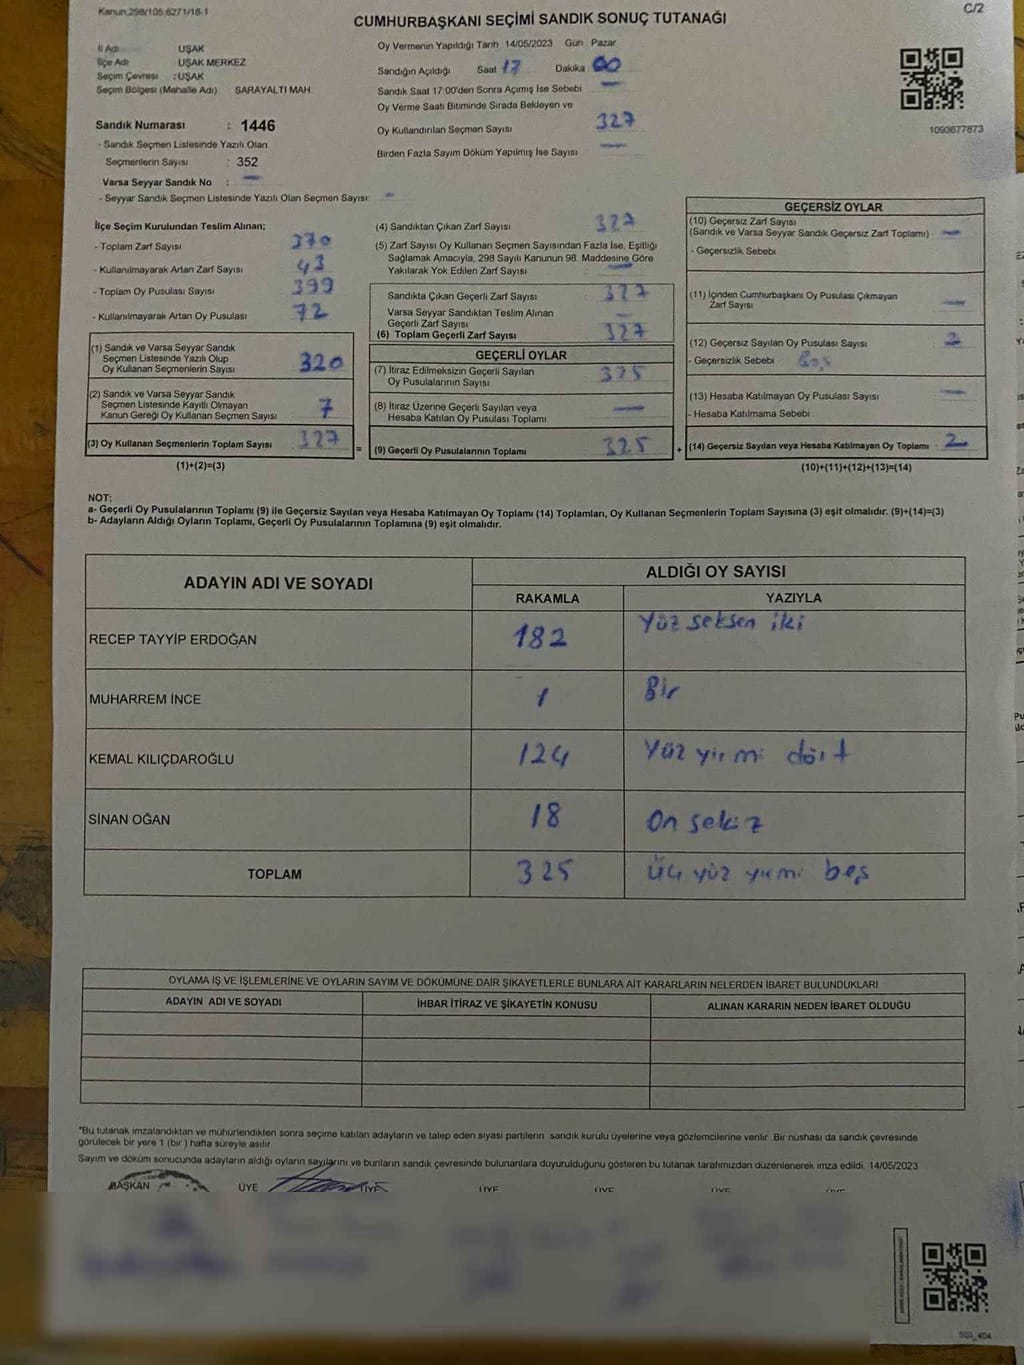 Kanun:298/105,6271/18-1
C/2
CUMHURBAŞKANI SEÇİMİ SANDIK SONUÇ TUTANAĞI
İl Adı : UŞAK
İlçe Adı : UŞAK MERKEZ
Seçim Çevresi : UŞAK
Seçim Bölgesi (Mahalle Adı) SARAYALTI MAH
Sandık Numarası : 1446
- Sandık Seçmen Listesinde Yazılı Olan
Seçmenlerin Sayısı : 352
Varsa Seyyar Sandık No : —
- Seyyar Sandık Seçmen Listesinde Yazılı Olan Seçmen Sayısı: —
Oy Vermenin Yapıldığı Tarih 14/05/2023 Gün Pazar
Sandığın Açıldığı Saat 17 Dakika 00
Sandık Saat 17:00'den Sonra Açımış İse Sebebi —
Oy Verme Saati Bitiminde Sırada Bekleyen ve
Oy Kullandırılan Seçmen Sayısı 327
Birden Fazla Sayım Döküm Yapılmış İse Sayısı —
1093677873
İlçe Seçim Kurulundan Teslim Alınan;
- Toplam Zarf Sayısı 370
- Kullanılmayarak Artan Zarf Sayısı 43
- Toplam Oy Pusulası Sayısı 399
- Kullanılmayarak Artan Oy Pusulası 72
(1) Sandık ve Varsa Seyyar Sandık
Seçmen Listesinde Yazılı Olup
Oy Kullanan Seçmenlerin Sayısı 320
(2) Sandık ve Varsa Seyyar Sandık
Seçmen Listesinde Kayıtlı Olmayan
Kanun Gereği Oy Kullanan Seçmen Sayısı 7
(3) Oy Kullanan Seçmenlerin Toplam Sayısı 327
(1)+(2)=(3)
(4) Sandıktan Çıkan Zarf Sayısı 327
(5) Zarf Sayısı Oy Kullanan Seçmen Sayısından Fazla İse, Eşitliği
Sağlamak Amacıyla, 298 Sayılı Kanunun 98. Maddesine Göre
Yakılarak Yok Edilen Zarf Sayısı —
Sandıkta Çıkan Geçerli Zarf Sayısı 327
Varsa Seyyar Sandıktan Teslim Alınan
Geçerli Zarf Sayısı —
(6) Toplam Geçerli Zarf Sayısı 327
GEÇERLİ OYLAR
(7) İtiraz Edilmeksizin Geçerli Sayılan
Oy Pusulalarının Sayısı 325
(8) İtiraz Üzerine Geçerli Sayılan veya
Hesaba Katılan Oy Pusulası Toplamı —
= (9) Geçerli Oy Pusulalarının Toplamı 325 +
GEÇERSİZ OYLAR
(10) Geçersiz Zarf Sayısı
(Sandık ve Varsa Seyyar Sandık Geçersiz Zarf Toplamı) —
- Geçersizlik Sebebi
(11) İçinden Cumhurbaşkanı Oy Pusulası Çıkmayan
Zarf Sayısı —
(12) Geçersiz Sayılan Oy Pusulası Sayısı 2
- Geçersizlik Sebebi Boş
(13) Hesaba Katılmayan Oy Pusulası Sayısı —
- Hesaba Katılmama Sebebi
(14) Geçersiz Sayılan veya Hesaba Katılmayan Oy Toplamı 2
(10)+(11)+(12)+(13)=(14)
NOT:
a- Geçerli Oy Pusulalarının Toplamı (9) ile Geçersiz Sayılan veya Hesaba Katılmayan Oy Toplamı (14) Toplamları, Oy Kullanan Seçmenlerin Toplam Sayısına (3) eşit olmalıdır. (9)+(14)=(3)
b- Adayların Aldığı Oyların Toplamı, Geçerli Oy Pusulalarının Toplamına (9) eşit olmalıdır.
ADAYIN ADI VE SOYADI ALDIĞI OY SAYISI
RAKAMLA YAZIYLA
RECEP TAYYİP ERDOĞAN 182 Yüz seksen iki
MUHARREM İNCE 1 Bir
KEMAL KILIÇDAROĞLU 124 Yüz yirmi dört
SİNAN OĞAN 18 On sekiz
TOPLAM 325 üç yüz yirmi beş
OYLAMA İŞ VE İŞLEMLERİNE VE OYLARIN SAYIM VE DÖKÜMÜNE DAİR ŞİKAYETLERLE BUNLARA AİT KARARLARIN NELERDEN İBARET BULUNDUKLARI
ADAYIN ADI VE SOYADI İHBAR İTİRAZ VE ŞİKAYETİN KONUSU ALINAN KARARIN NEDEN İBARET OLDUĞU
*Bu tutanak imzalandıktan ve mühürlendikten sonra seçime katılan adayların ve talep eden siyasi partilerin sandık kurulu üyelerine veya gözlemcilerine verilir. Bir nüshası da sandık çevresinde
görülecek bir yere 1 (bir) hafta süreyle asılır
Sayım ve döküm sonucunda adayların aldığı oyların sayılarını ve bunların sandık çevresinde bulunanlara duyurulduğunu gösteren bu tutanak tarafımızdan düzenlenerek imza edildi. 14/05/2023
BAŞKAN ÜYE ÜYE ÜYE ÜYE ÜYE ÜYE
SSI_404